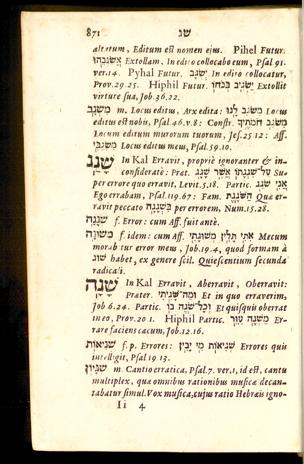 871 שג
altatum, Editum est nomen ejus. Pihel Futur.
אֲשַׂגְּבֵהוּ Extollam. In edito collocabo eum, Psal. 91.
ver. 14. Pyhal Futur. יְשֻׂגָּב In edito collocatur,
Prov. 29. 25. Hiphil Futur. יַשְׂגִּיב בְּכֹחוֹ Extollit
virtute sua, Job. 36. 22.
מִשְׂגָּב m. Locus editus, Arx edita: מִשְׂגָּב לָנוּ Locus
editus est nobis, Psal. 46. v. 8: Constr. מִשְׂגַּב חוֹמֹתֶיךָ
Locum editum murorum tuorum, Jes. 25. 12: Aff.
מִשְׂגַּבִּי Locus editus meus, Psal. 59. 10.
שָׁגַג In Kal Erravit, propriè ignoranter & in-
consideratè: Præt. עַל־שִׁגְגָתוֹ אֲשֶׁר שָׁגָג Su-
per errore quo erravit, Levit. 5. 18. Partic. אֲנִי שֹׁגֵג
Ego errabam, Psal. 119. 67: Fem. הַשֹּׁגֶגֶת Quæ er-
ravit peccato בִּשְׁגָגָה per errorem, Num. 15. 28.
שְׁגָגָה f. Error: cum Aff. fuit antè.
מְשׁוּגָה f. idem: cum Aff. אִתִּי תָּלִין מְשׁוּגָתִי Mecum
morabitur error meus, Job. 19. 4, quod formam à
שׁוג habet, ex genere scil. Quiescentium secunda
radicali.
שָׁגָה In Kal Erravit, Aberravit, Oberravit:
Præter. וּמַה־שָּׁגִיתִי Et in quo erraverim,
Job 6. 24. Partic. וְכָל־שֹׁגֶה בּוֹ Et quisquis oberrat
in eo, Prov. 20. 1. Hiphil Partic. מַשְׁגֶּה עִוֵּר Er-
rare faciens cæcum, Job. 12. 16.
שְׁגִיאוֹת f. p. Errores: שְׁגִיאוֹת מִי יָבִין Errores quis
intelligit, Psal 19 13.
שִׁגָּיוֹן m. Cantio erratica, Psal. 7. ver. 1, id est, cantu
multiplex, quæ omnibus rationibus musicæ decan-
tabatur simul. Vox musica, cujus ratio Hebræis igno-
Ii 4